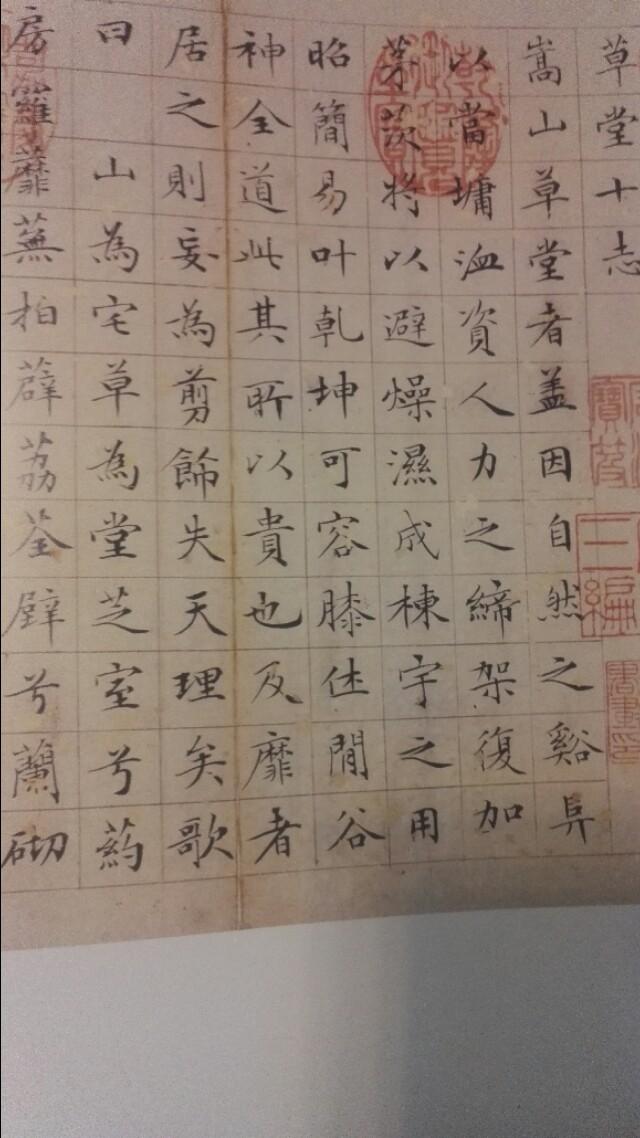 草堂十志
嵩山草堂者盖因自然之谿阜
以當墉洫資人力之締架復加
茅茨將以避燥濕成棟宇之用
昭簡易叶乾坤可容膝休閒谷
神全道此其所以貴也及靡者
居之則妄為剪餙失天理矣歌
曰山為宅草為堂芝室兮葯
房羅蘼蕪拍薜荔荃壁兮蘭砌